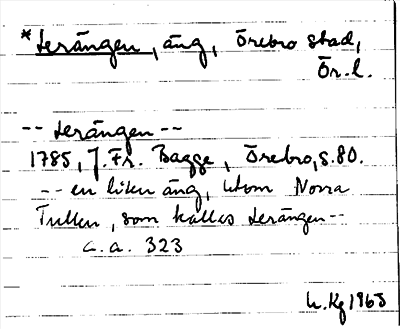 *Lerängen, äng, Örebro stad,
Ör.l.
-- Lerängen --
1785, J. Fr. Bagge, Örebro, s. 80.
-- en liten äng, utom Norra
Tullen, som kallas Lerängen --
a. a. 323
Kg 1968